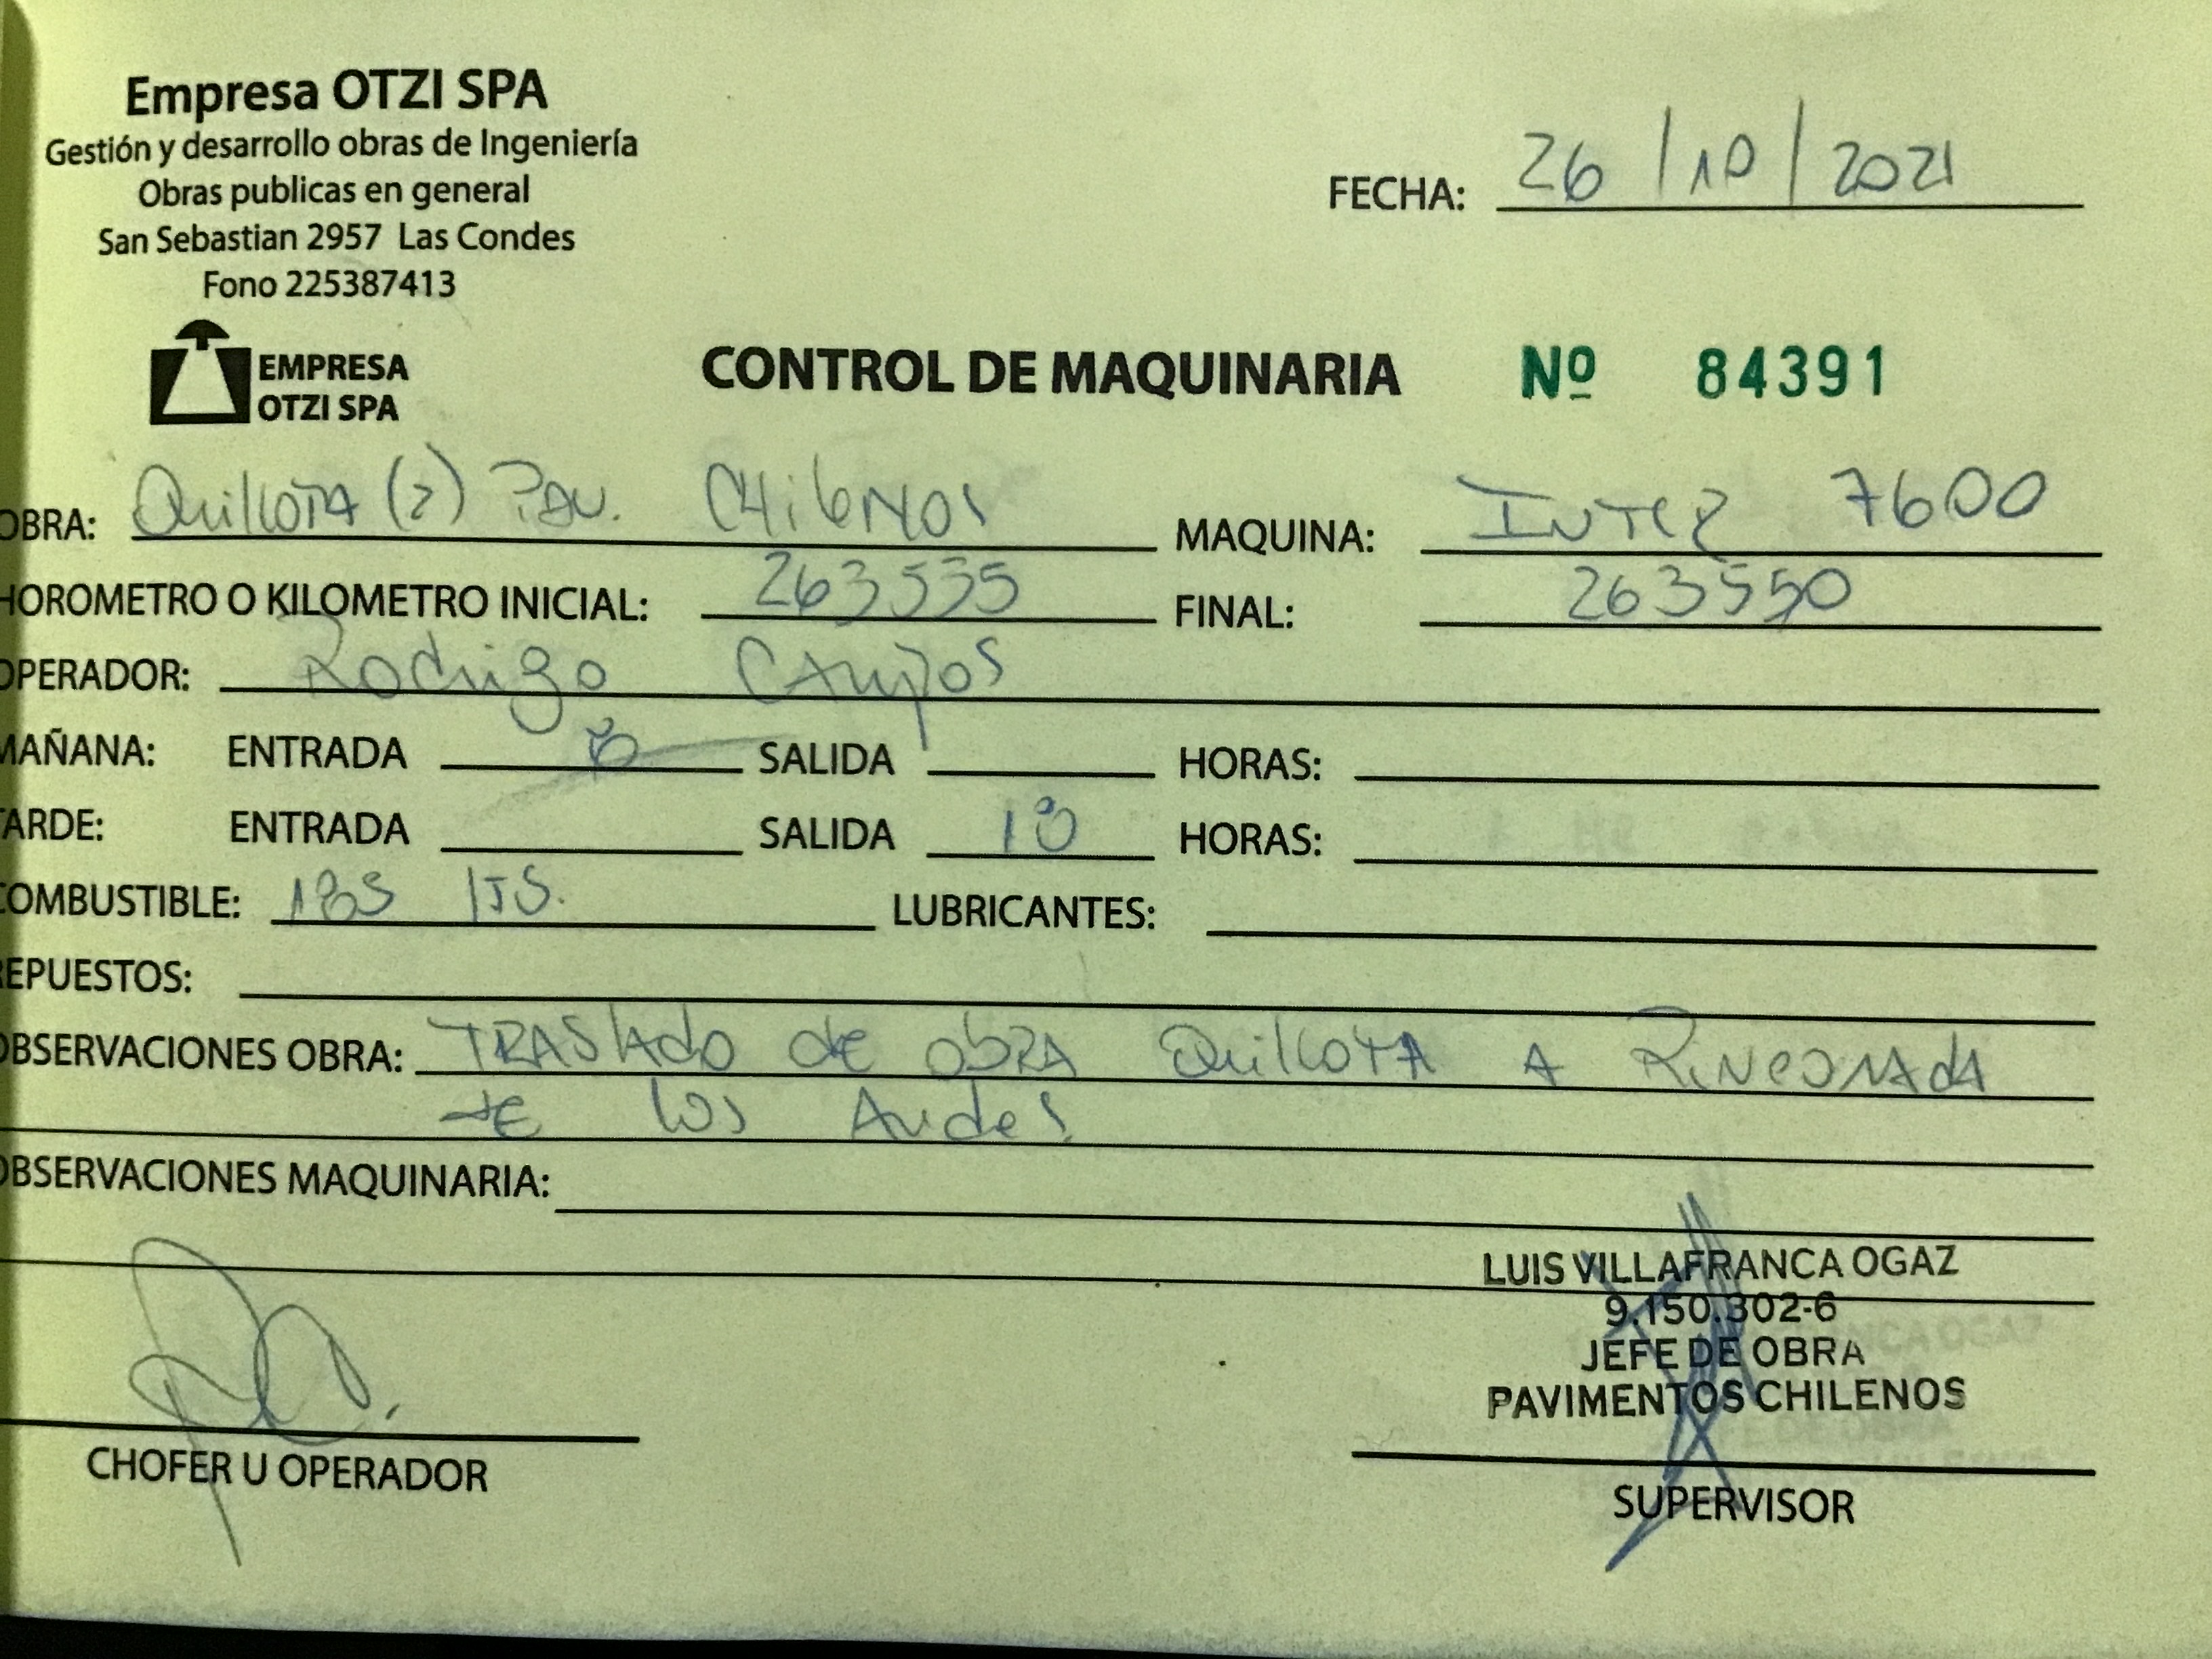 Empresa OTZI SPA
Gestión y desarrollo obras de Ingeniería
Obras publicas en general
San Sebastian 2957 Las Condes
Fono 225387413
FECHA: 26/10/2021
EMPRESA
OTZI SPA
CONTROL DE MAQUINARIA Nº 84391
OBRA: Quillota (2) Pav. Chilenos MAQUINA: INTER 7600
HOROMETRO O KILOMETRO INICIAL: 263535 FINAL: 263550
OPERADOR: Rodrigo Campos
MAÑANA: ENTRADA 8 SALIDA HORAS:
TARDE: ENTRADA SALIDA 18 HORAS:
COMBUSTIBLE: lts. LUBRICANTES:
REPUESTOS:
OBSERVACIONES OBRA: TRASLAdo de obRA QuillotA A RiNcoNAdA
de los Andes
OBSERVACIONES MAQUINARIA:
LUIS VILLAFRANCA OGAZ
9.150.302-6
JEFE DE OBRA
PAVIMENTOS CHILENOS
CHOFER U OPERADOR
SUPERVISOR